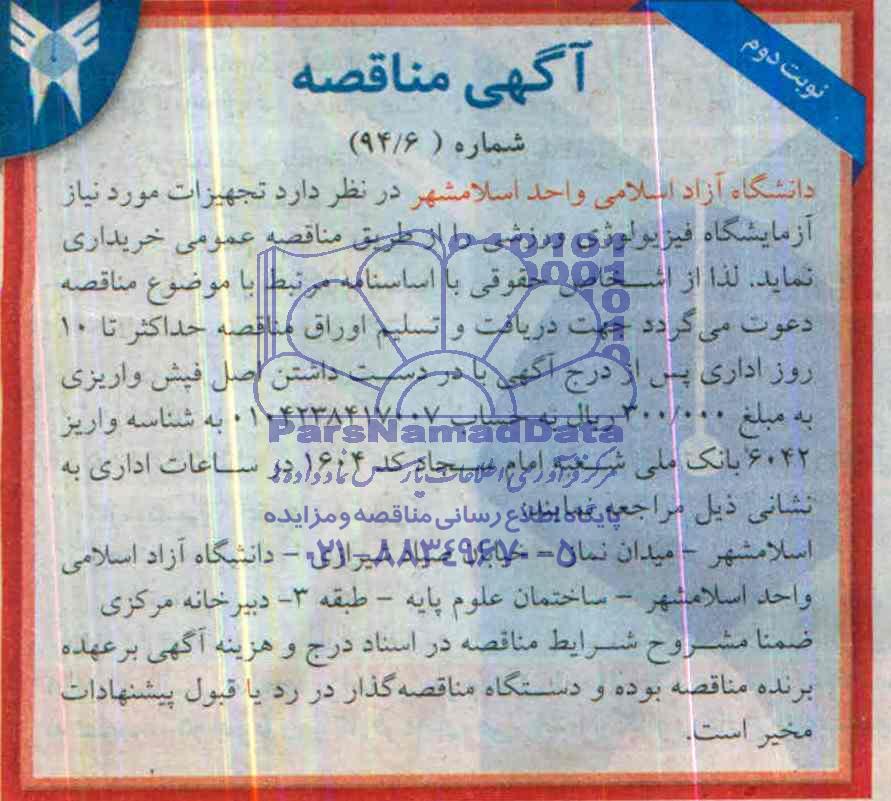 نوبت دوم
آگهی مناقصه
شماره ( ۹۴/۶)
دانشگاه آزاد اسلامی واحد اسلامشهر در نظر دارد تجهیزات مورد نیاز
آزمایشگاه فیزیولوژی ورزشی را از طریق مناقصه عمومی خریداری
نماید. لذا از اشخاص حقوقی با اساسنامه مرتبط با موضوع مناقصه
دعوت می گردد جهت دریافت و تسلیم اوراق مناقصه حداکثر تا ۱۰
روز اداری پس از درج آگهی با در دست داشتن اصل فیش واریزی
به مبلغ ۳۰۰/۰۰۰ ریال به حساب ۰۱۰۴۲۳۸۴۱۷۰۰۷ به شناسه واریز
۶۰۴۲ بانک ملی شعبه امام سجاد کد ۱۶۱۴ در ساعات اداری به
نشانی ذیل مراجعه نمایند.
اسلامشهر - میدان نماز - خیابان صیاد شیرازی - دانشگاه آزاد اسلامی
واحد اسلامشهر - ساختمان علوم پایه - طبقه ۳- دبیرخانه مرکزی
ضمنا مشروح شرایط مناقصه در اسناد درج و هزینه آگهی برعهده
برنده مناقصه بوده و دستگاه مناقصه گذار در رد یا قبول پیشنهادات
مخیر است.
ParsNamadData
مرکز فرآوری اطلاعات پارس نماد داده ها
پایگاه اطلاع رسانی مناقصه و مزایده
۰۲۱-۸۸۳۴۹۶۷۰-۵